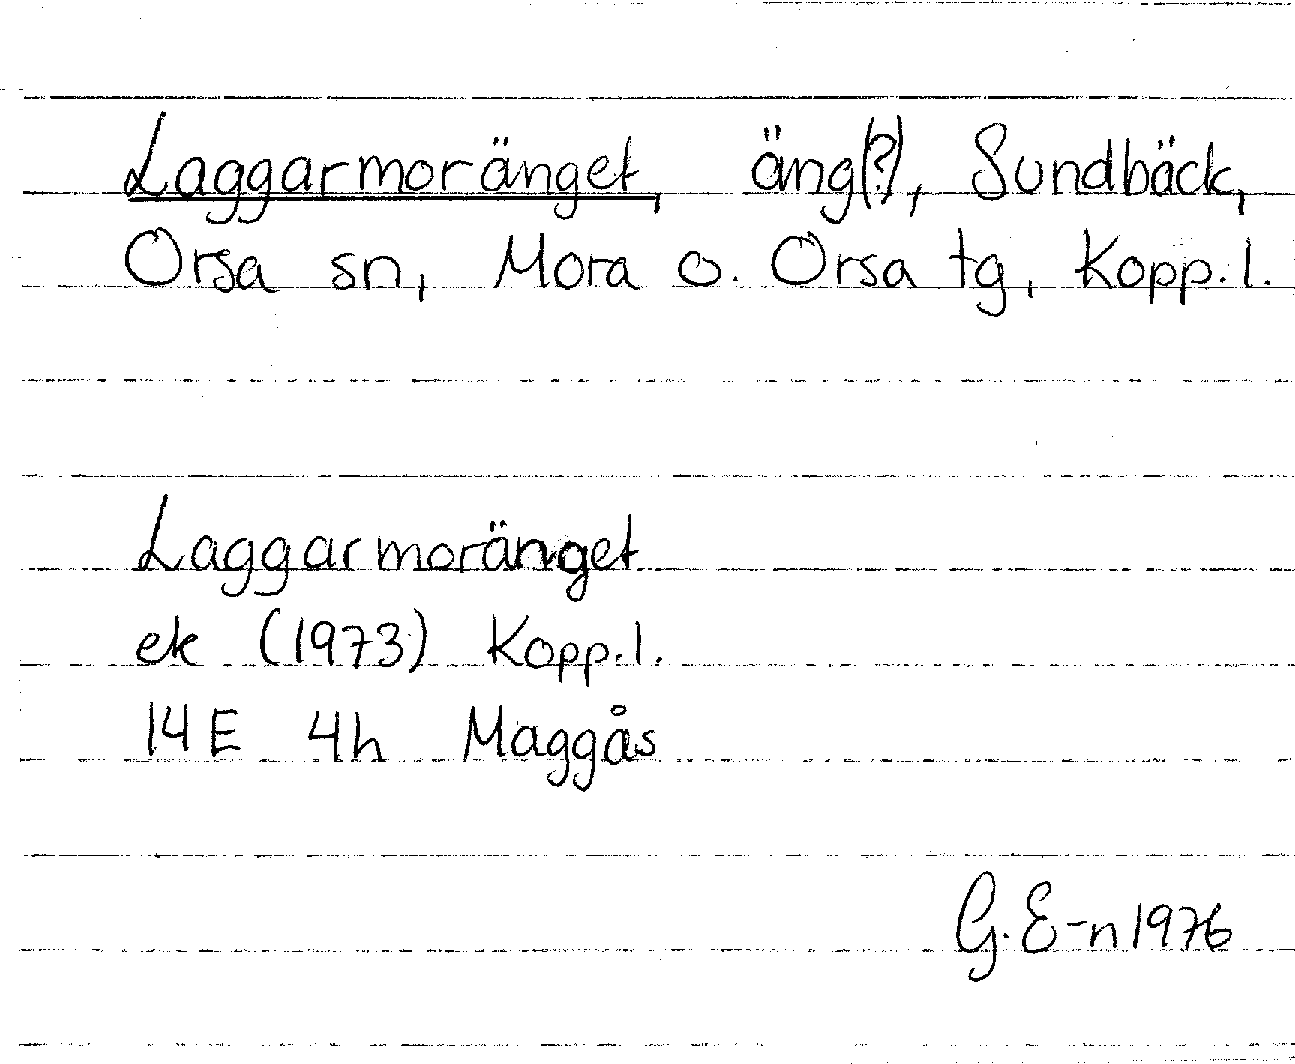 Laggarmoränget, äng(?), Sundbäck,
Orsa sn, Mora o. Orsa tg, Kopp. l.
Laggarmoränget
ek (1973) Kopp. l.
14E 4h Maggås
G. E-n 1976